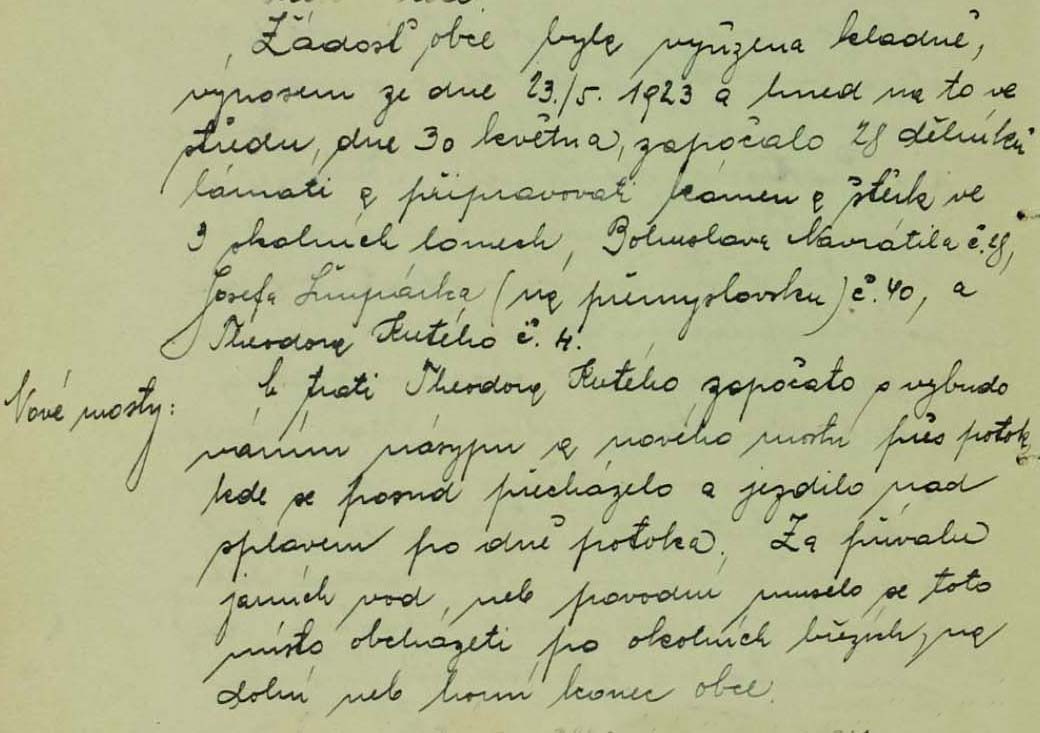 Žádost obce byla vyřízena kladně,
výnosem ze dne 23./5. 1923 a hned na to ve
středu, dne 30 května, započalo 28 dělníků
lámati a připravovati kámen a štěrk ve
3 skalních lomech, Bohuslava Navrátila č. 28,
Josefa (na přemyslovsku) č. 40, a
Theodora Kutého č. 4.
Nové mosty:
trati Theodora Kutého započato s vybudo
váním násypu a nového mostu přes potok
kde se posud přecházelo a jezdilo nad
splavem po dně potoka. Za přívalu
jarních vod, neb povodní muselo se toto
místo obcházeti po okolních březích, na
dolní neb horní konec obce.